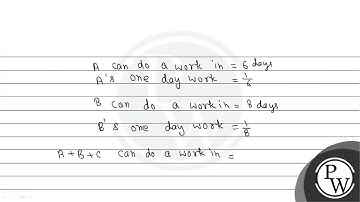 A can do a work in = 6 days
A's one day work = 1/6
B can do a work in = 8 days
B's one day work = 1/8
A+B+C can do a work in =
P
W